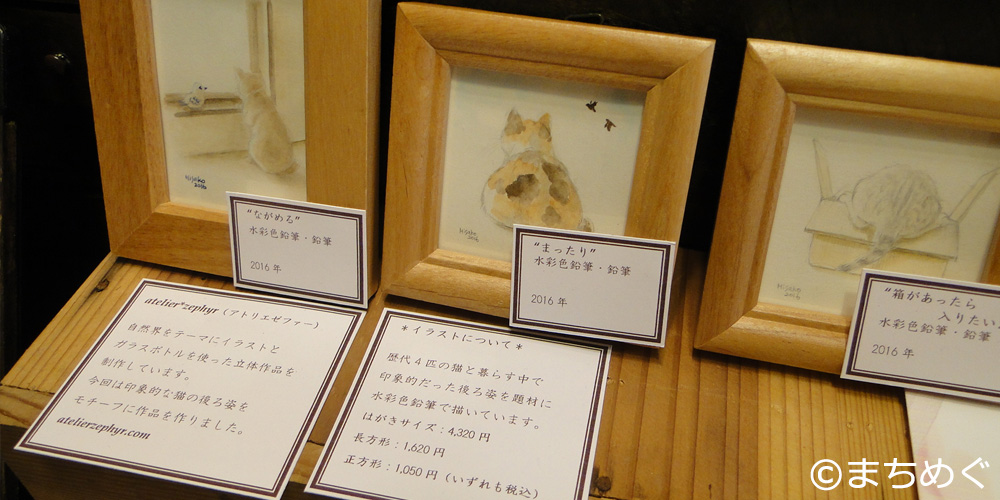 Hisako
2016
"ながめる"
水彩色鉛筆・鉛筆
2016年
Hisako
2016
"まったり"
水彩色鉛筆・鉛筆
2016年
Hisako
2016
"箱があったら
入りたい
水彩色鉛筆・鉛筆
2016年
atelier*zephyr（アトリエゼファー）
自然界をテーマにイラストと
ガラスボトルを使った立体作品を
制作しています。
今回は印象的な猫の後ろ姿を
モチーフに作品を作りました。
atelierzephyr.com
*イラストについて*
歴代4匹の猫と暮らす中で
印象的だった後ろ姿を題材に
水彩色鉛筆で描いています。
はがきサイズ：4,320円
長方形：1,620円
正方形：1,050円（いずれも税込）
©まちめぐ